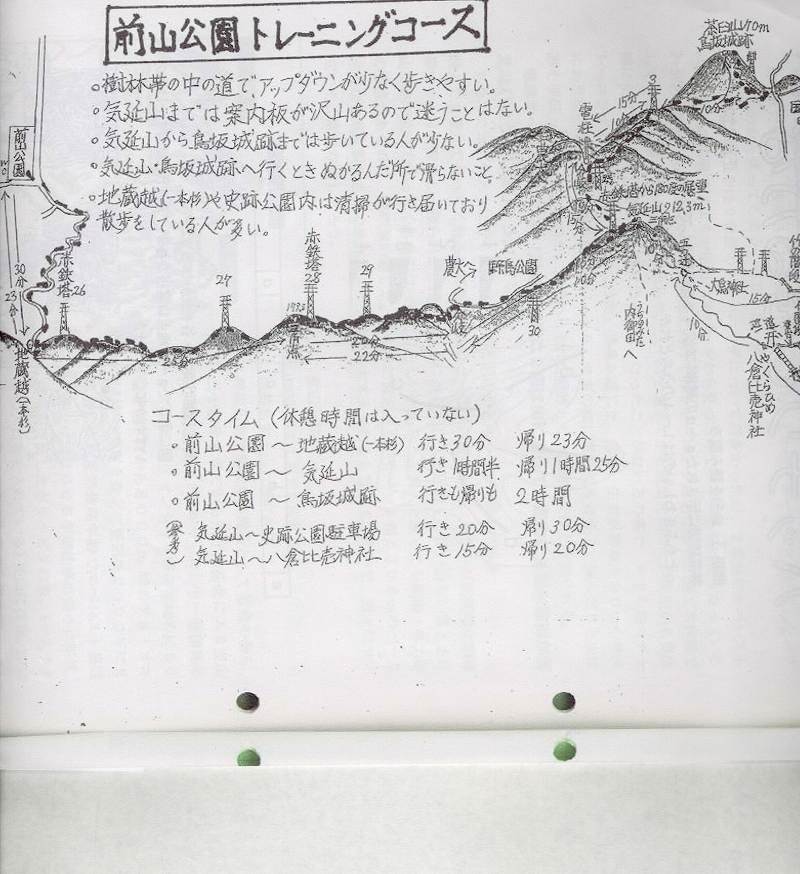 前山公園トレーニングコース
○樹林帯の中の道でアップダウンが少なく歩きやすい。
○気延山までは案内板が沢山あるので迷うことはない。
○気延山から鳥坂城跡までは歩いている人が少ない。
○気延山・鳥坂城跡へ行くときぬかるんだ所で滑らないこと。
○地蔵越(一本杉)や史跡公園内は清掃が行き届いており
散歩をしている人が多い。
茶臼山
鳥坂城跡
前山公園
WC
30分
23分
赤鉄塔26
地蔵越(一本杉)
27
赤鉄塔28
三角点
29
20分
22分
農大へ
野鳥公園
30
15分
10分
赤鉄塔から180度の展望
気延山212.3m
三角点
内御田へ
大泉神社
15分
10分
やくらひめ
八倉比売神社
コースタイム(休憩時間は入っていない)
○前山公園〜地蔵越(一本杉) 行き30分 帰り23分
○前山公園〜気延山 行き1時間半 帰り1時間25分
○前山公園〜鳥坂城跡 行きも帰りも2時間
(参考) 気延山〜史跡公園駐車場 行き20分 帰り30分
気延山〜八倉比売神社 行き15分 帰り20分